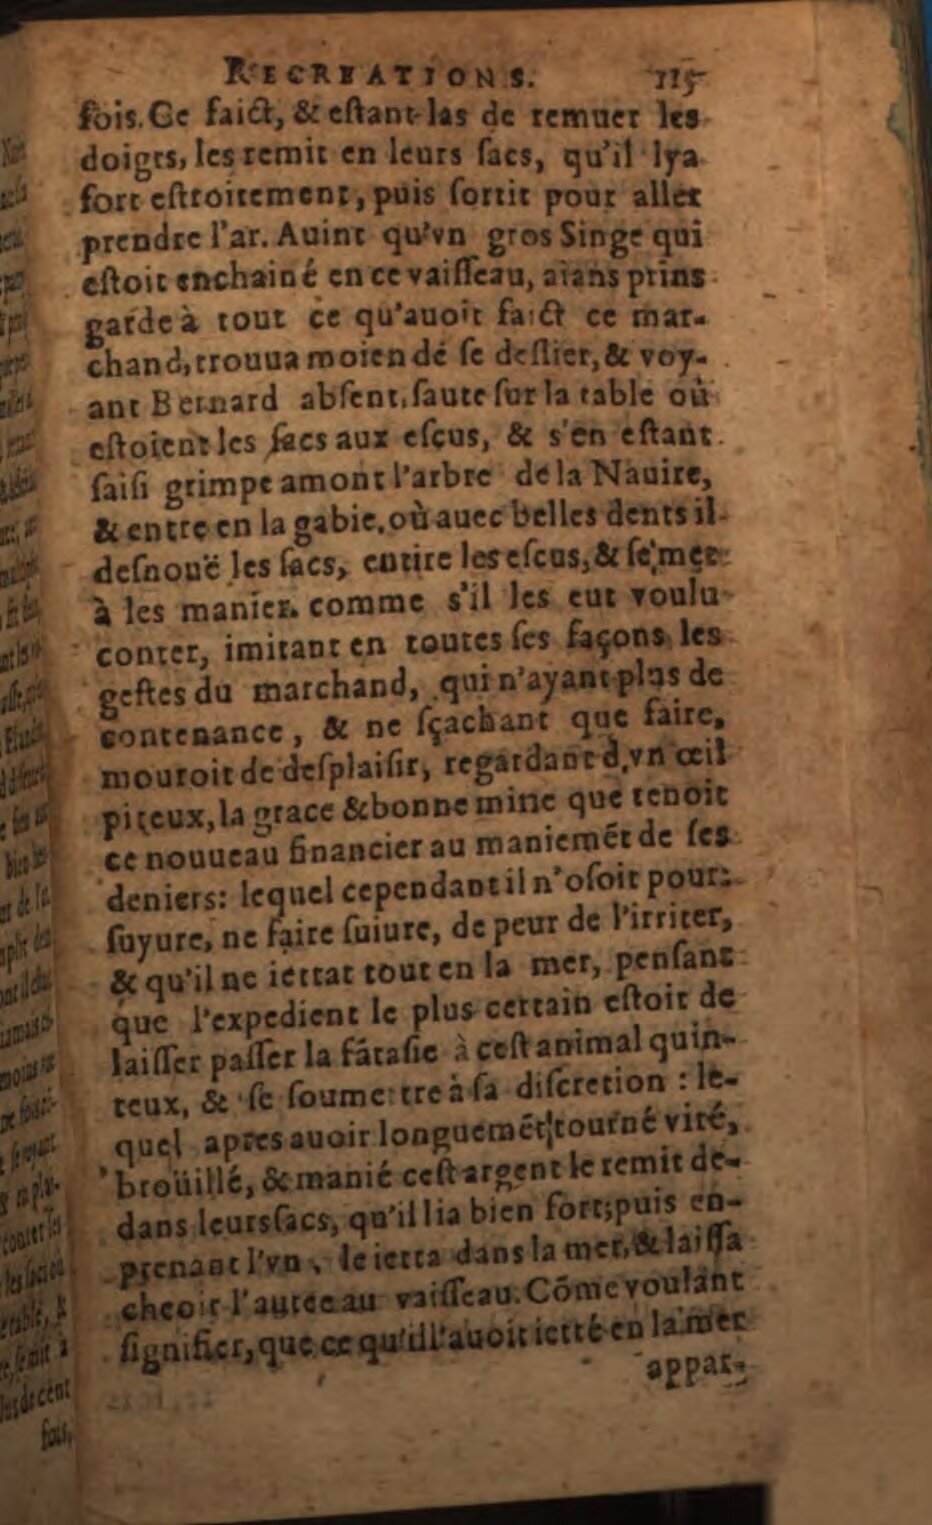 RECREATIONS. 115
fois. Ce faict, & eſtant las de remuer les
doigts, les remit en leurs ſacs, qu'il lya
fort eſtroitement, puis ſortit pour aller
prendre l'ar. Auint qu'vn gros Singe qui
eſtoit enchainé en ce vaiſſeau, aians prins
garde à tout ce qu'auoit faict ce mar-
chand, trouua moien dé ſe deſlier, & voy-
ant Bernard abſent, ſaute ſur la table où
eſtoient les ſacs aux eſçus, & s'en eſtant
ſaiſi grimpe amont l'arbre de la Nauire,
& entre en la gabie, où auec belles dents il
deſnouë les ſacs, en tire les eſcus, & ſe met
à les manier, comme s'il les eut voulu
conter, imitant en toutes ſes façons les
geſtes du marchand, qui n'ayant plus de
contenance, & ne ſçachant que faire,
mouroit de deſplaiſir, regardant d'vn œil
piteux, la grace & bonne mine que tenoit
ce nouueau financier au maniemét de ſes
deniers: lequel cependant il n'oſoit pour-
ſuyure, ne faire ſuiure, de peur de l'irriter,
& qu'il ne iettat tout en la mer, penſant
que l'expedient le plus certain eſtoit de
laiſſer paſſer la fátaſie à ceſt animal quin-
teux, & ſe ſoumettre à ſa diſcretion : le-
quel apres auoir longuemét tourné viré,
broüillé, & manié ceſt argent le remit de-
dans leurs ſacs, qu'il lia bien fort; puis en-
prenant l'vn, le ietta dans la mer, & laiſſa
cheoir l'autre au vaiſſeau. Cõme voulant
ſignifier, que ce qu'il l'auoit ietté en la mer
appar-